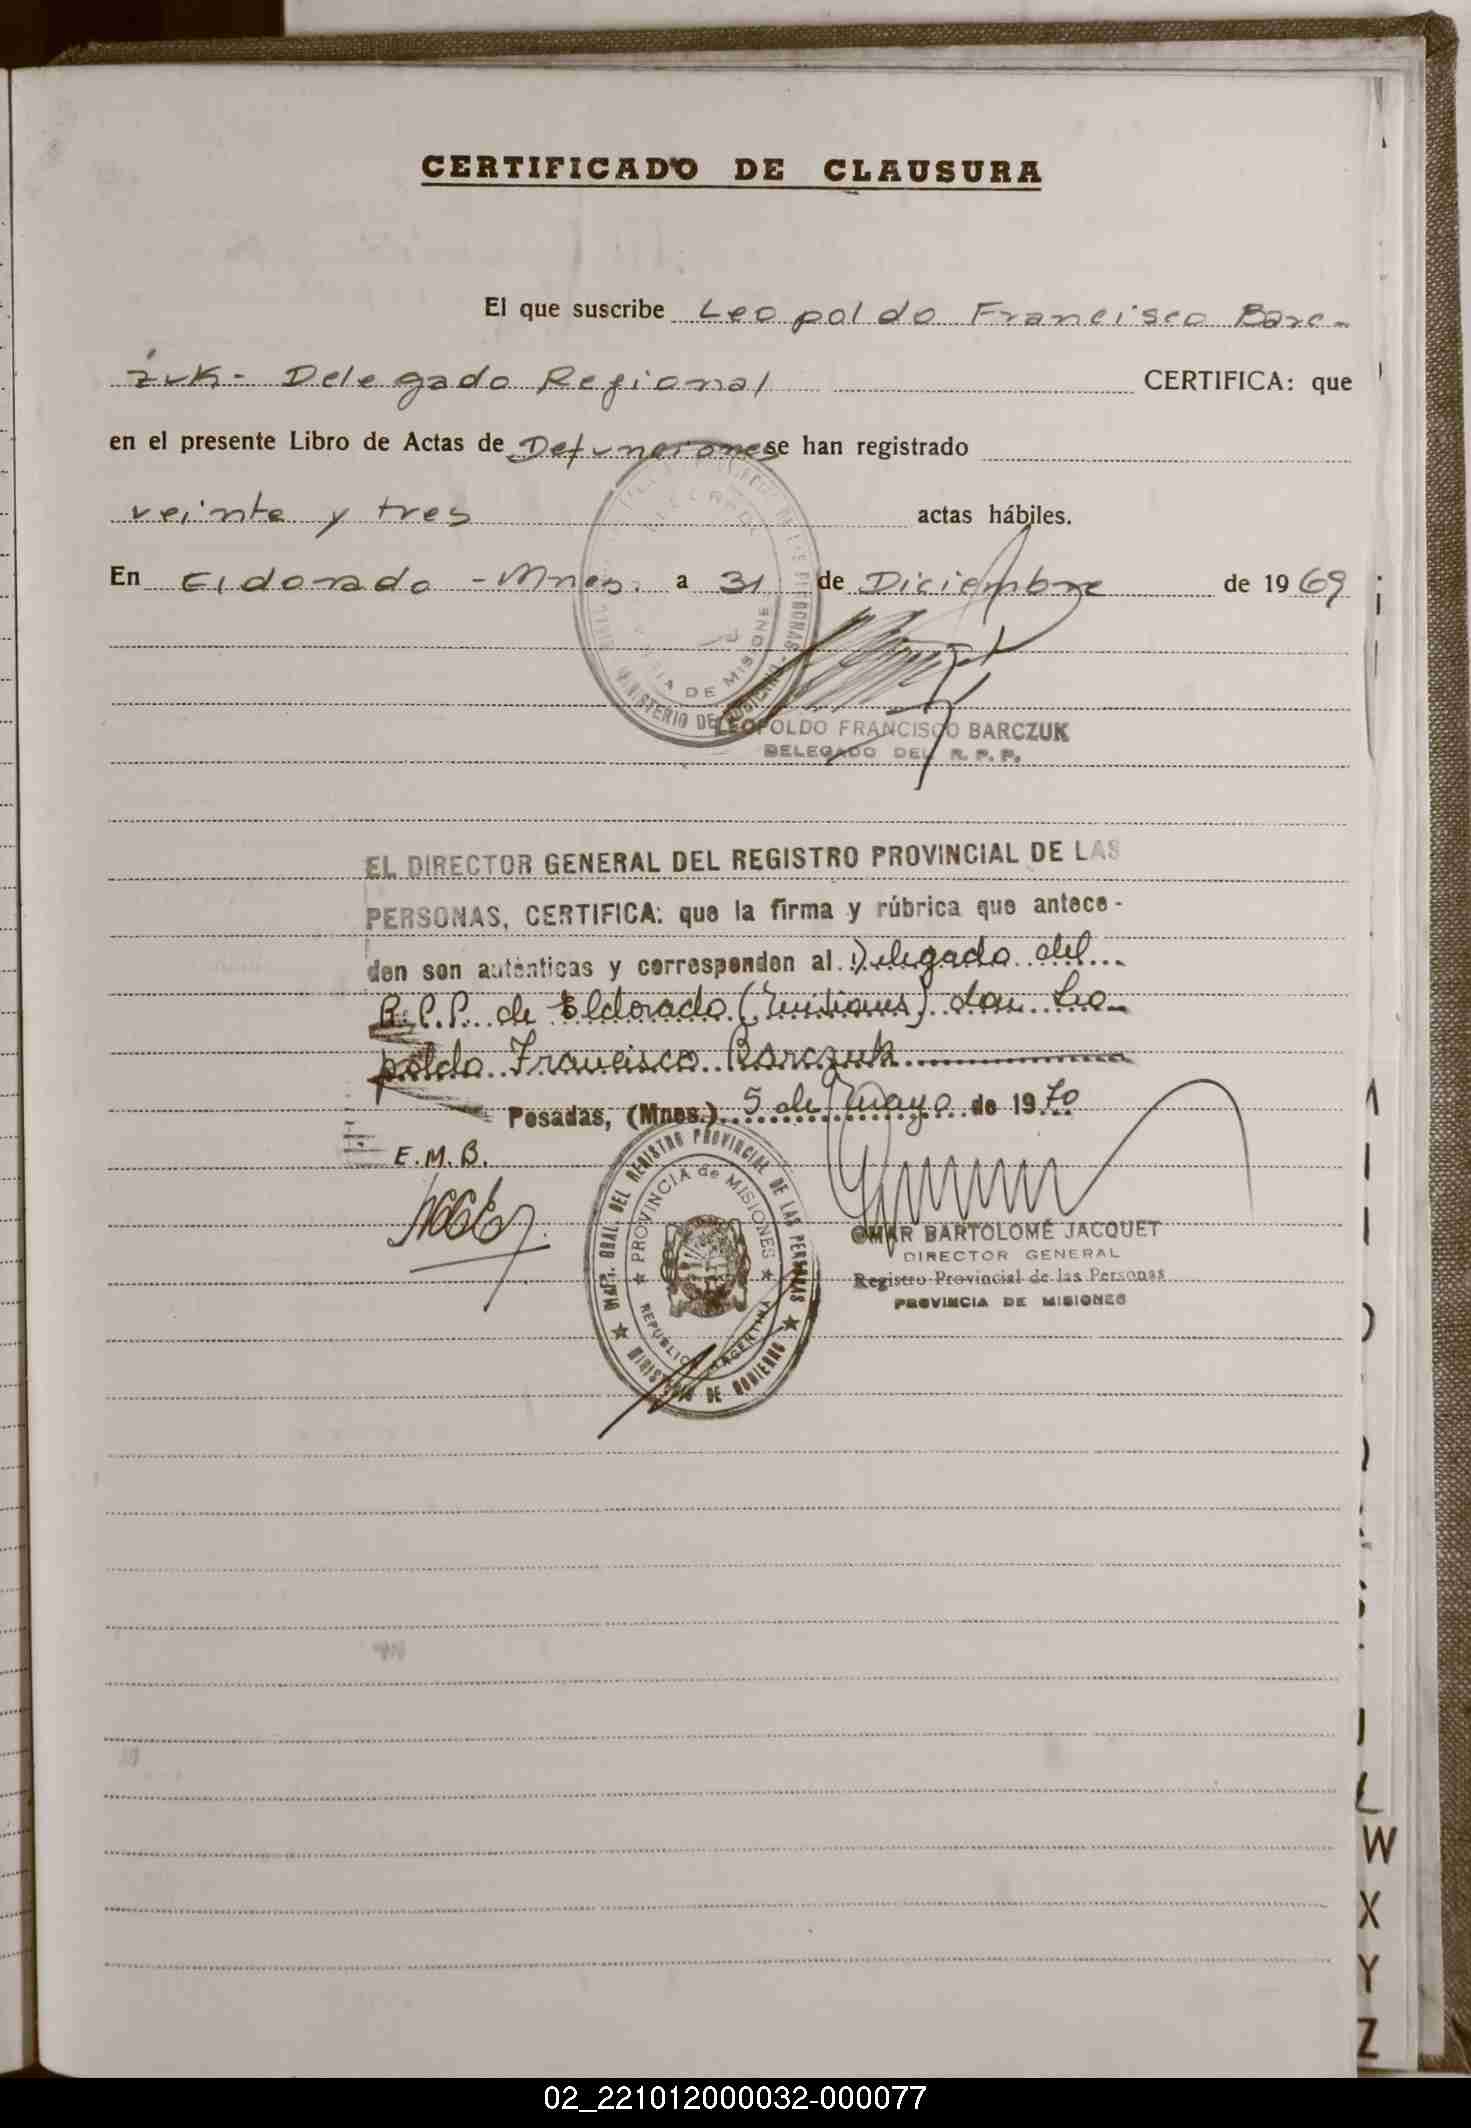 CERTIFICADO DE CLAUSURA
El que suscribe Leopoldo Francisco Barc-
zuk - Delegado Regional CERTIFICA: que
en el presente Libro de Actas de Defunciones se han registrado
veinte y tres actas hábiles.
En Eldorado - Mnes. a 31 de Diciembre de 1969
PROVINCIA DE MISIONES
MINISTERIO DE GOBIERNO
LEOPOLDO FRANCISCO BARCZUK
DELEGADO DEL R. P. P.
EL DIRECTOR GENERAL DEL REGISTRO PROVINCIAL DE LAS
PERSONAS, CERTIFICA: que la firma y rúbrica que antece-
den son auténticas y corresponden al Delegado del
R.P.P. de Eldorado (Misiones) don Leo-
poldo Francisco Barczuk
Posadas, (Mnes.) 5 de Mayo de 1970
E.M.B.
DIREC. GRAL. DEL REGISTRO PROVINCIAL DE LAS PERSONAS
PROVINCIA de MISIONES
REPUBLICA ARGENTINA
MINISTERIO DE GOBIERNO
OMAR BARTOLOMÉ JACQUET
DIRECTOR GENERAL
Registro Provincial de las Personas
PROVINCIA DE MISIONES
W
X
Y
Z
02_221012000032-000077